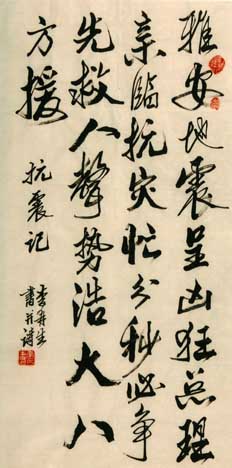 雅安地震呈凶狂总理
亲临抗灾忙分秒必争
先救人声势浩大八
方援
抗震记
李舟生
书并诗